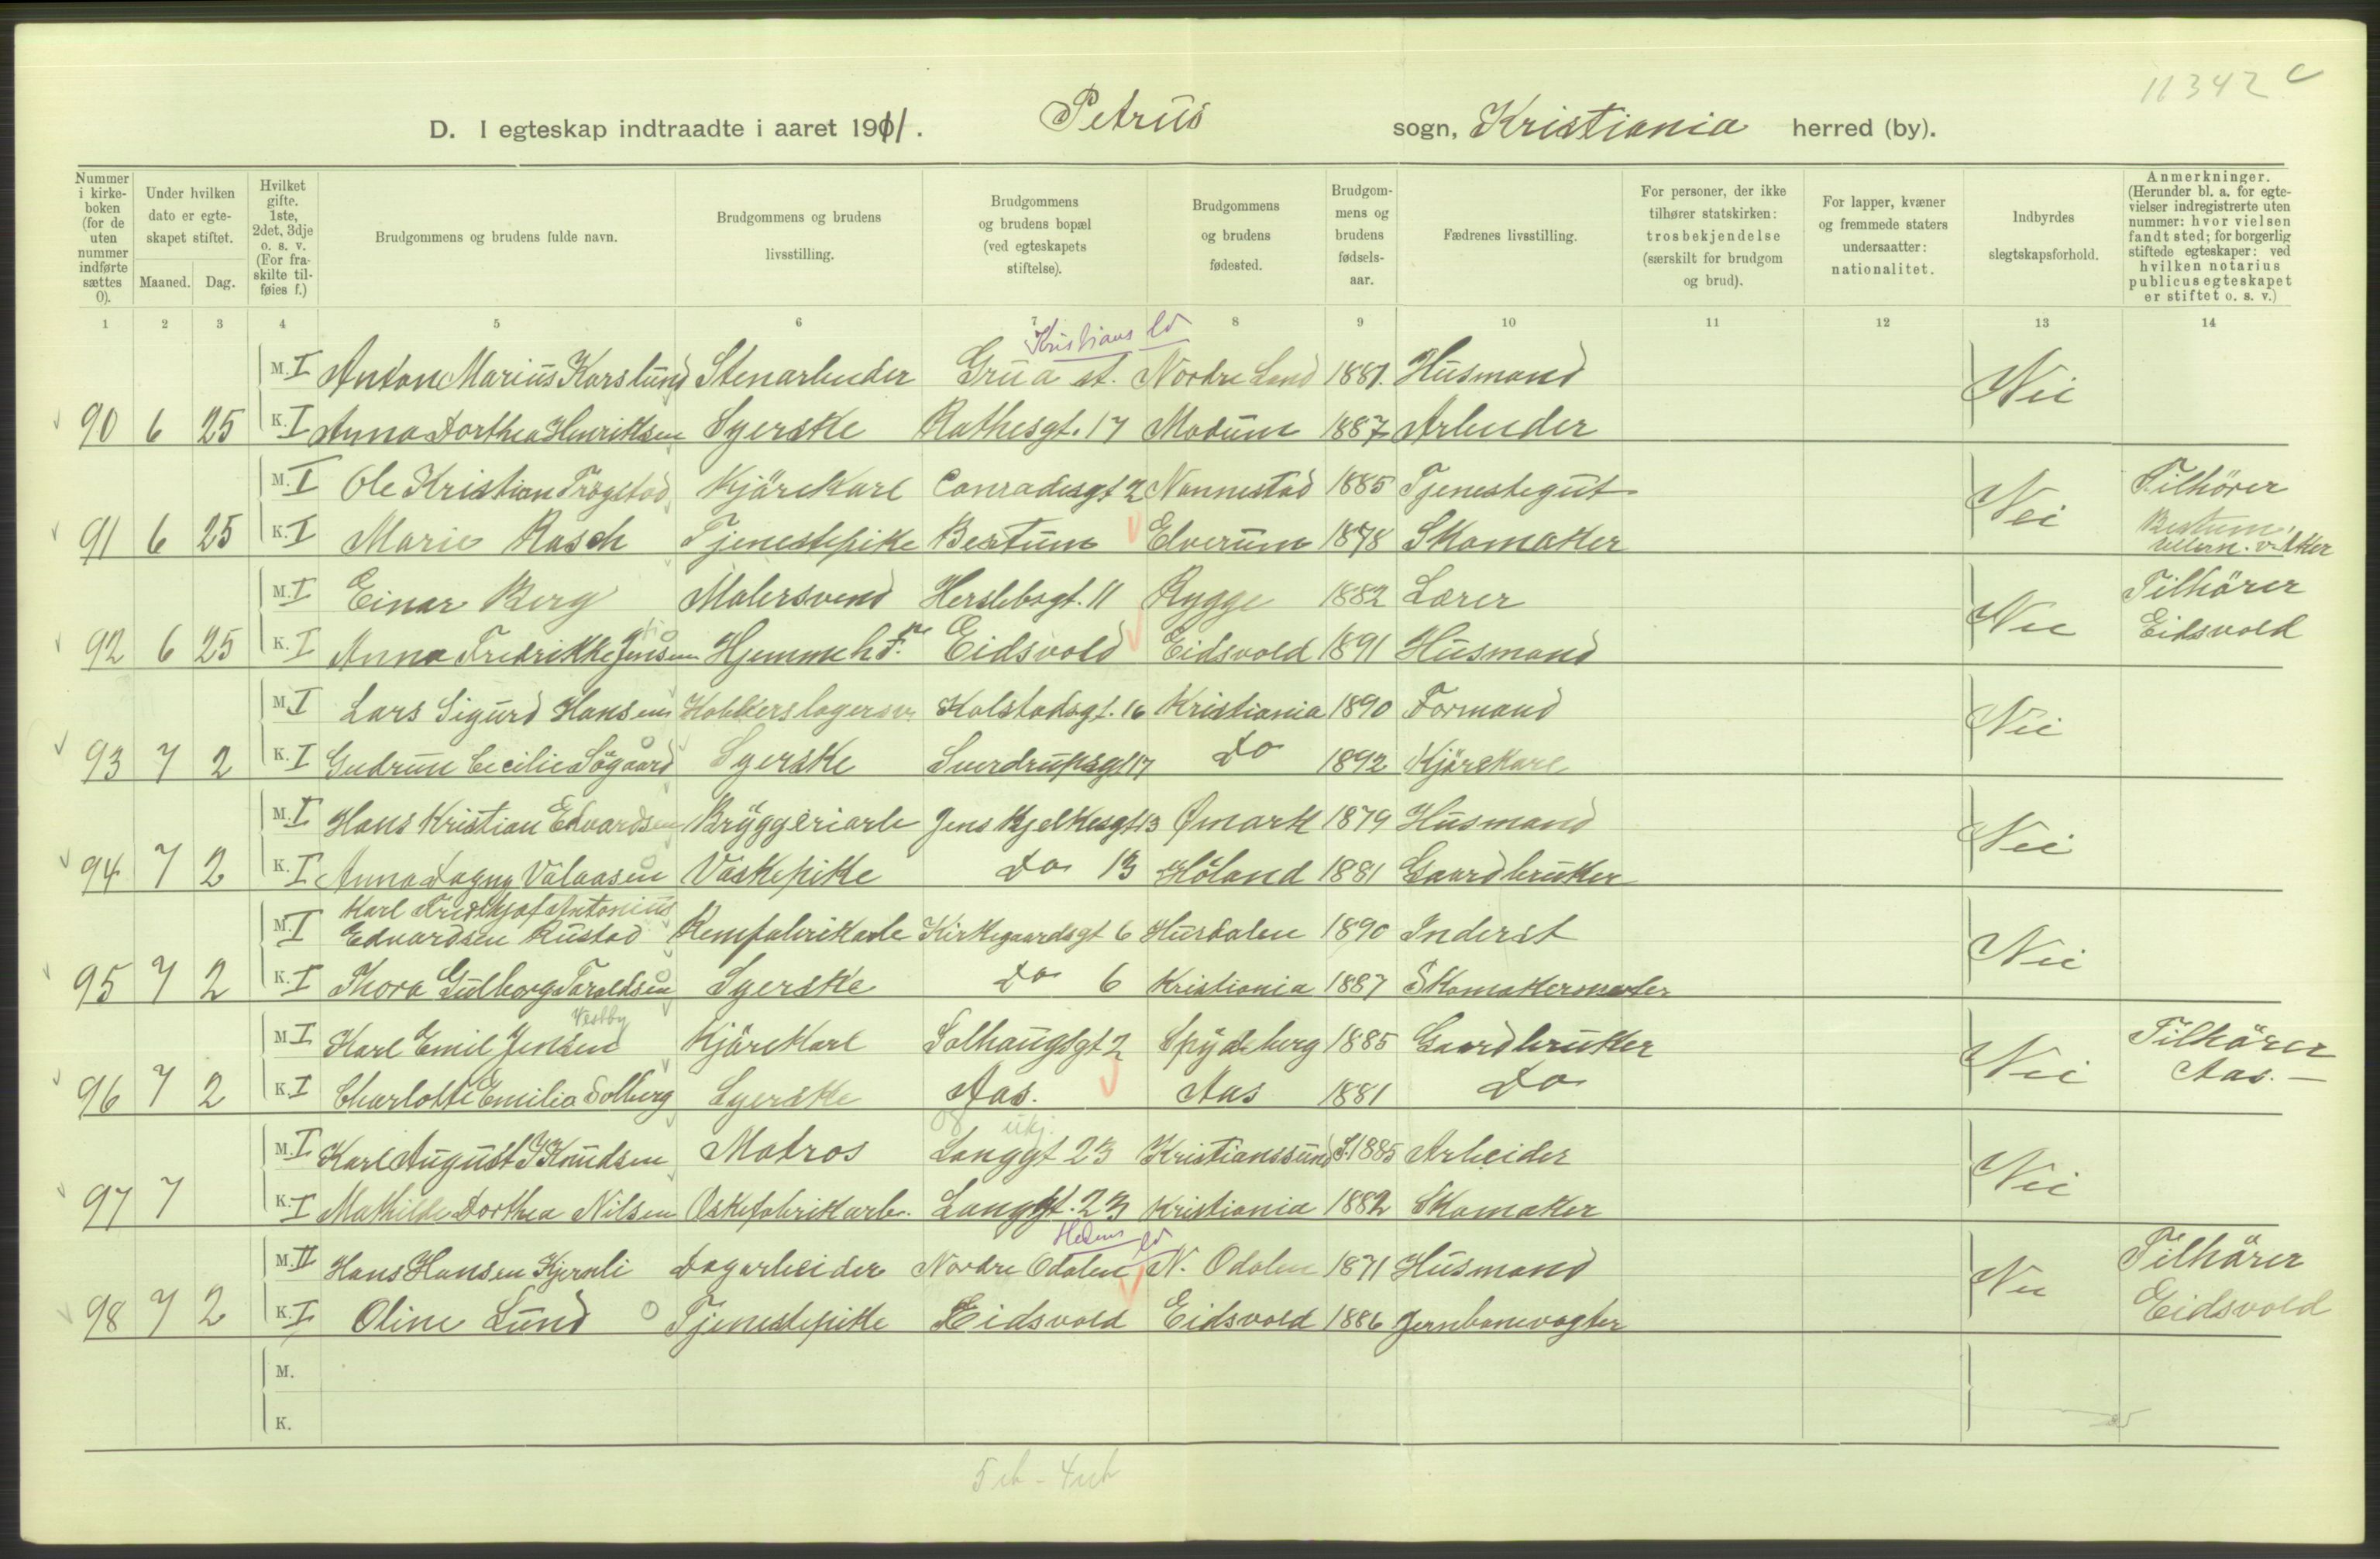 11342 C
D. I egteskap indtraadte i aaret 1911. Petrus sogn, Kristiania herred (by).
Nummer i kirkeboken (for de uten nummer indførte sættes 0).
Under hvilken dato er egteskapet stiftet.
Maaned. Dag.
Hvilket gifte. 1ste, 2det, 3dje o. s. v. (For fraskilte tilføies f.)
Brudgommens og brudens fulde navn.
Brudgommens og brudens livsstilling.
Brudgommens og brudens bopæl (ved egteskapets stiftelse).
Brudgommens og brudens fødested.
Brudgommens og brudens fødselsaar.
Fædrenes livsstilling.
For personer, der ikke tilhører statskirken: trosbekjendelse (særskilt for brudgom og brud).
For lapper, kvæner og fremmede staters undersaatter: nationalitet.
Indbyrdes slegtskapsforhold.
Anmerkninger. (Herunder bl. a. for egtevielser indregistrerte uten nummer: hvor vielsen fandt sted; for borgerlig stiftede egteskaper: ved hvilken notarius publicus egteskapet er stiftet o. s. v.)
1 2 3 4 5 6 7 8 9 10 11 12 13 14
Kristians
M. I Anton Marius Karslund Stenarbeider Grua st. Nordre Land 1881. Husmand Nei
90 6 25 K. I Anna Dorthea Henriksen Syerske Rathesgt. 17 Modum 1887 Arbeider
M. I Ole Kristian Trøgstad Kjörekarl Conradesgt 2 Nannestad 1885 Tjenestegut Nei Tilhörer
91 6 25 K. I Marie Rasch Tjenestepike Bestum Elverum 1878 Skomaker Bestum, Ullern. V. Aker
M. I Einar Berg Malersvend Herslebsgt. 11 Rygge 1882 Lærer Nei Tilhörer
92 6 25 K. I Anna Fredrikke Jensen Hjemme h. F. Eidsvold Eidsvold 1891 Husmand Eidsvold
M. I Lars Sigurd Hansen Kobberslagersv. Kolstadsgt. 16 Kristiania 1890 Formand Nei
93 7 2 K. I Gudrun Cecilie Sögaard Syerske Sverdrupsgt 17 Do 1892 Kjörekarl
M. I Hans Kristian Edvardsen Bryggeriarb Jens Bjelkesgt 13 Ømark 1879 Husmand Nei
94 7 2 K. I Anna Dagny Vålaasen Vaskepike Do 13 Höland 1881 Gaardbruker
Karl Fridthjof Antonius
M. I Edvardsen Rustad Remfabrikarb Kirkegaardsgt 6 Hurdalen 1890 Inderst Nei
95 7 2 K. I Thora Gulborg Taraldsen Syerske Do 6 Kristiania 1887 Skomakermester
Vestby
M. I Karl Emil Jensen Kjörekarl Solhaugsgt 2 Spydeberg 1885 Gaardbruker Nei Tilhörer
96 7 2 K. I Charlotte Emilia Solberg Syerske Aas. Aas 1881 Do Aas. —
08 ukj.
M. I Karl August J Knudsen Matros Langgt 23 Kristianssund S. 1885 Arbeider Nei
97 7 K. I Mathilde Dorthea Nilsen Æskefabrikarb. Langgt. 23 Kristiania 1882 Skomaker
Hedem
M. II Hans Hansen Kjernli Dagarbeider Nordre Odalen N. Odalen 1871 Husmand Nei Tilhörer
98 7 2 K. I Oline Lund Tjenestepike Eidsvold Eidsvold 1886 Jernbanevogter Eidsvold
M.
K.